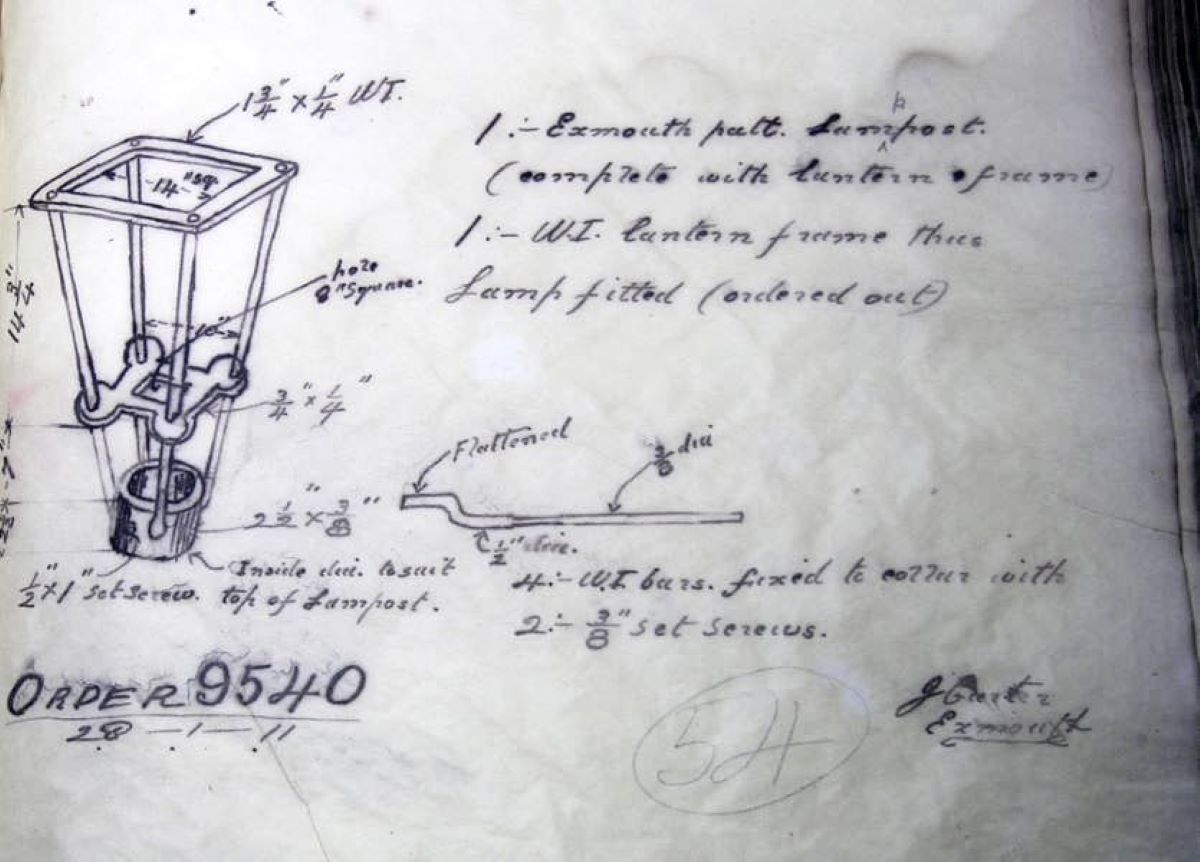 1 3/4" x 1/4" W.I.
1 :- Exmouth patt. Lampost.
p
(complete with lantern frame)
14" sq
1 :- W.I. lantern frame thus
hole
8" square.
Lamp fitted (ordered out)
14 3/4"
10"
3/4" x 1/4"
Flattened
3/8 dia
2 1/2" x 3/8"
1/2" dia.
Inside dia. to suit
top of Lampost.
1/2" x 1" set screw.
4 :- W.I. bars. fixed to collar with
2 :- 3/8" set screws.
ORDER 9540
28-1-11
54
Exmouth